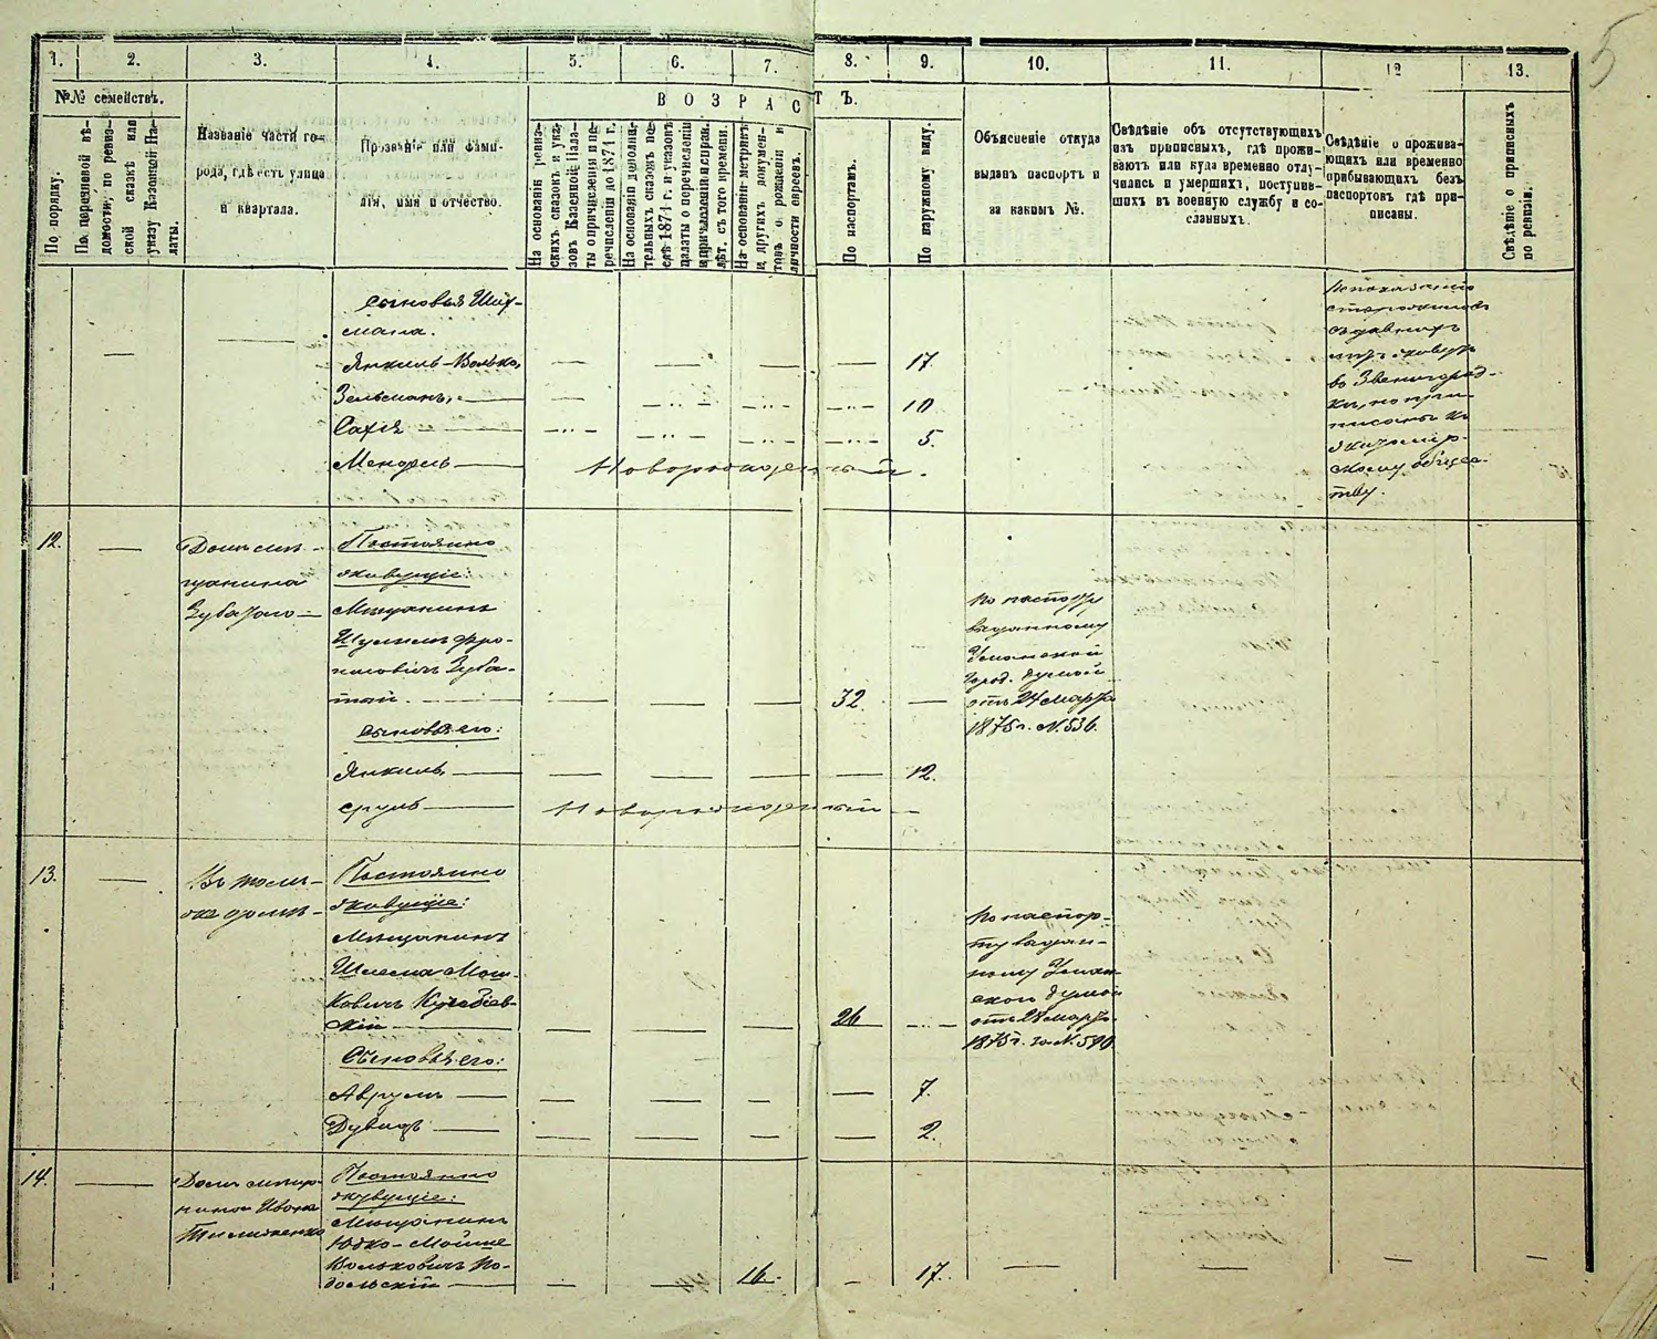 5
1. 2. 3. 4. 5. 6. 7. 8. 9. 10. 11. 12 13.
№№ семействъ.
ВОЗРАСТЪ.
По порядку.
По перечневой вѣ-
домости, по ревиз-
ской сказкѣ или
указу Казенной Па-
латы.
Названіе части го-
рода, гдѣ есть улица
и квартала.
Прозвѣніе или фами-
лія, имя и отчество.
На основаніи ревиз-
скихъ сказокъ и ука-
зовъ Казенной Пала-
ты о причисленіи и пе-
речисленіи до 1874 г.
На основаніи дополни-
тельныхъ сказокъ по-
слѣ 1874 г. и указовъ
палаты о перечисленіи
и причисленіи и справк.
лѣт. съ того времени.
На основаніи метрикъ
и другихъ докумен-
товъ о рожденіи и
личности евреевъ.
По паспортамъ.
По наружному виду.
Объясненіе откуда
выданъ паспортъ и
за какимъ №.
Свѣдѣніе объ отсутствующихъ
изъ приписныхъ, гдѣ прожи-
ваютъ или куда временно отлу-
чились и умершихъ, поступив-
шихъ въ военную службу и со-
сланныхъ.
Свѣдѣніе о прожива-
ющихъ или временно
прибывающихъ безъ
паспортовъ гдѣ при-
писаны.
Свѣдѣніе о приписныхъ
по ревизіи.
— — сыновья Шиз-
мана.
Янкель-Волько, — — — — 17.
Зельманъ, — — -"- -"- -"- 10
Сахія — -"- -"- -"- -"- 5.
Мендель — Новорожденный.
По показанію
старожиловъ
съ давнихъ
лѣтъ живутъ
въ Звенигород-
кѣ, но припи-
писаны къ
Житомір-
скому общес-
тву.
12. — Домъ мѣ-
щанина
Зубатаго —
Постоянно
живущіе:
Мѣщанинъ
Шулимъ Фро-
имовичъ Зуба-
тый. — — — — 32 —
По паспорту
выданному
Уманской
город. думой
отъ 24 Марта
1875 г. N. 536.
Сыновья его:
Янкель — — — — — 12.
Сруль — Новорожденный —
13. — Въ томъ-
же домѣ —
Постоянно
живущіе:
Мѣщанинъ
Шлема Мош-
ковичъ
скій — — — — 26 -"-
По паспор-
ту выдан-
ному Уман-
ской думой
отъ 28 Марта
1875 г. за N. 590
Сыновья его:
Аврумъ — — — — — 7.
Дувидъ — — — — — 2.
14. — Домъ мѣща-
нина Ивана
Тимошенко
Постоянно
живущіе:
Мѣщанинъ
Юдко-Мойше
Вольковичъ По-
дольскій — — — 16. — 17. — — — —